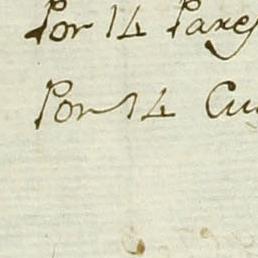 Por 14 Pares
Por 14 Cu